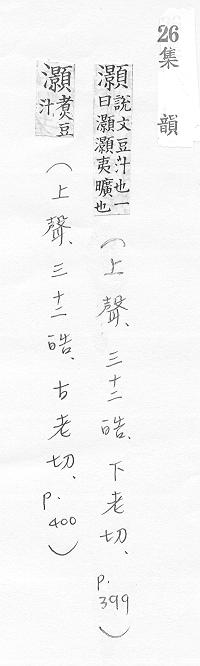 26
集韻
灝說文豆汁也一曰灝灝夷曠也（上聲、三十二皓、下老切、p.399）
灝煑豆汁（上聲、三十二皓、古老切、p.400）